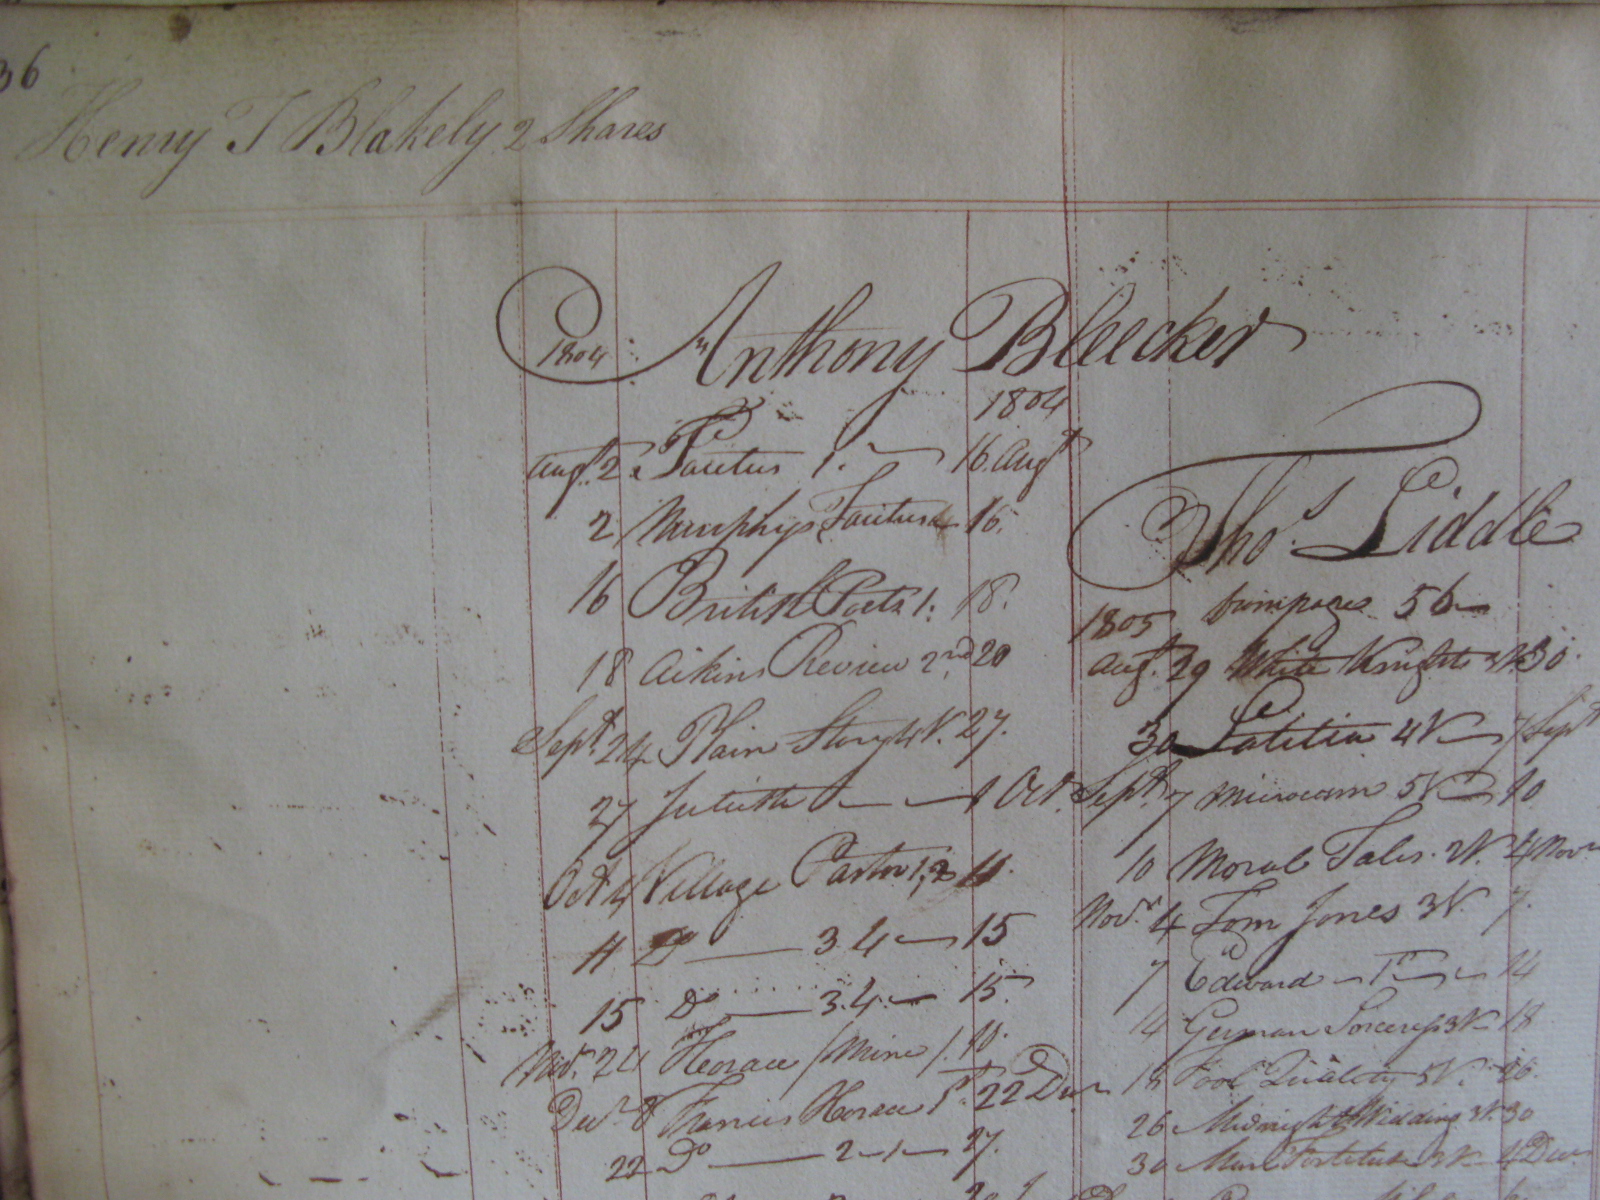 36
Henry T Blakely 2 Shares
1804 Anthony Bleecker
1804
Augt. 2 Tacitus 1. 16 Augt
2 Murphys Tacitus 4 16.
16 British Poets 1. 18.
18 Aikins Review 2nd 20
Sept. 24 Plain Story 4 V. 27.
27 1 Oct.
Oct 4 Village Pastor 1, 2 11.
11 Do 3.4 15
15 Do 3.4. 15.
24 Horace / Mine / 10.
Decr 8 Francis Horace 1st. 22 Decr
22 Do 2 1 27.
Thos. Liddle
1805 from page 56
Augt. 29 White Knights 3V. 30.
30 Latitia 4V 7 Sept
Sept 7 5V 10
10 Moral Tales. 2V. 4 Novr
Novr. 4 Tom Jones 3V. 7.
7 Edward 1st 14
14 German Sorceress 3V 18
18 Fool Quality 5V. 26.
26 Midnight Wedding 3V. 30
30 4 Decr